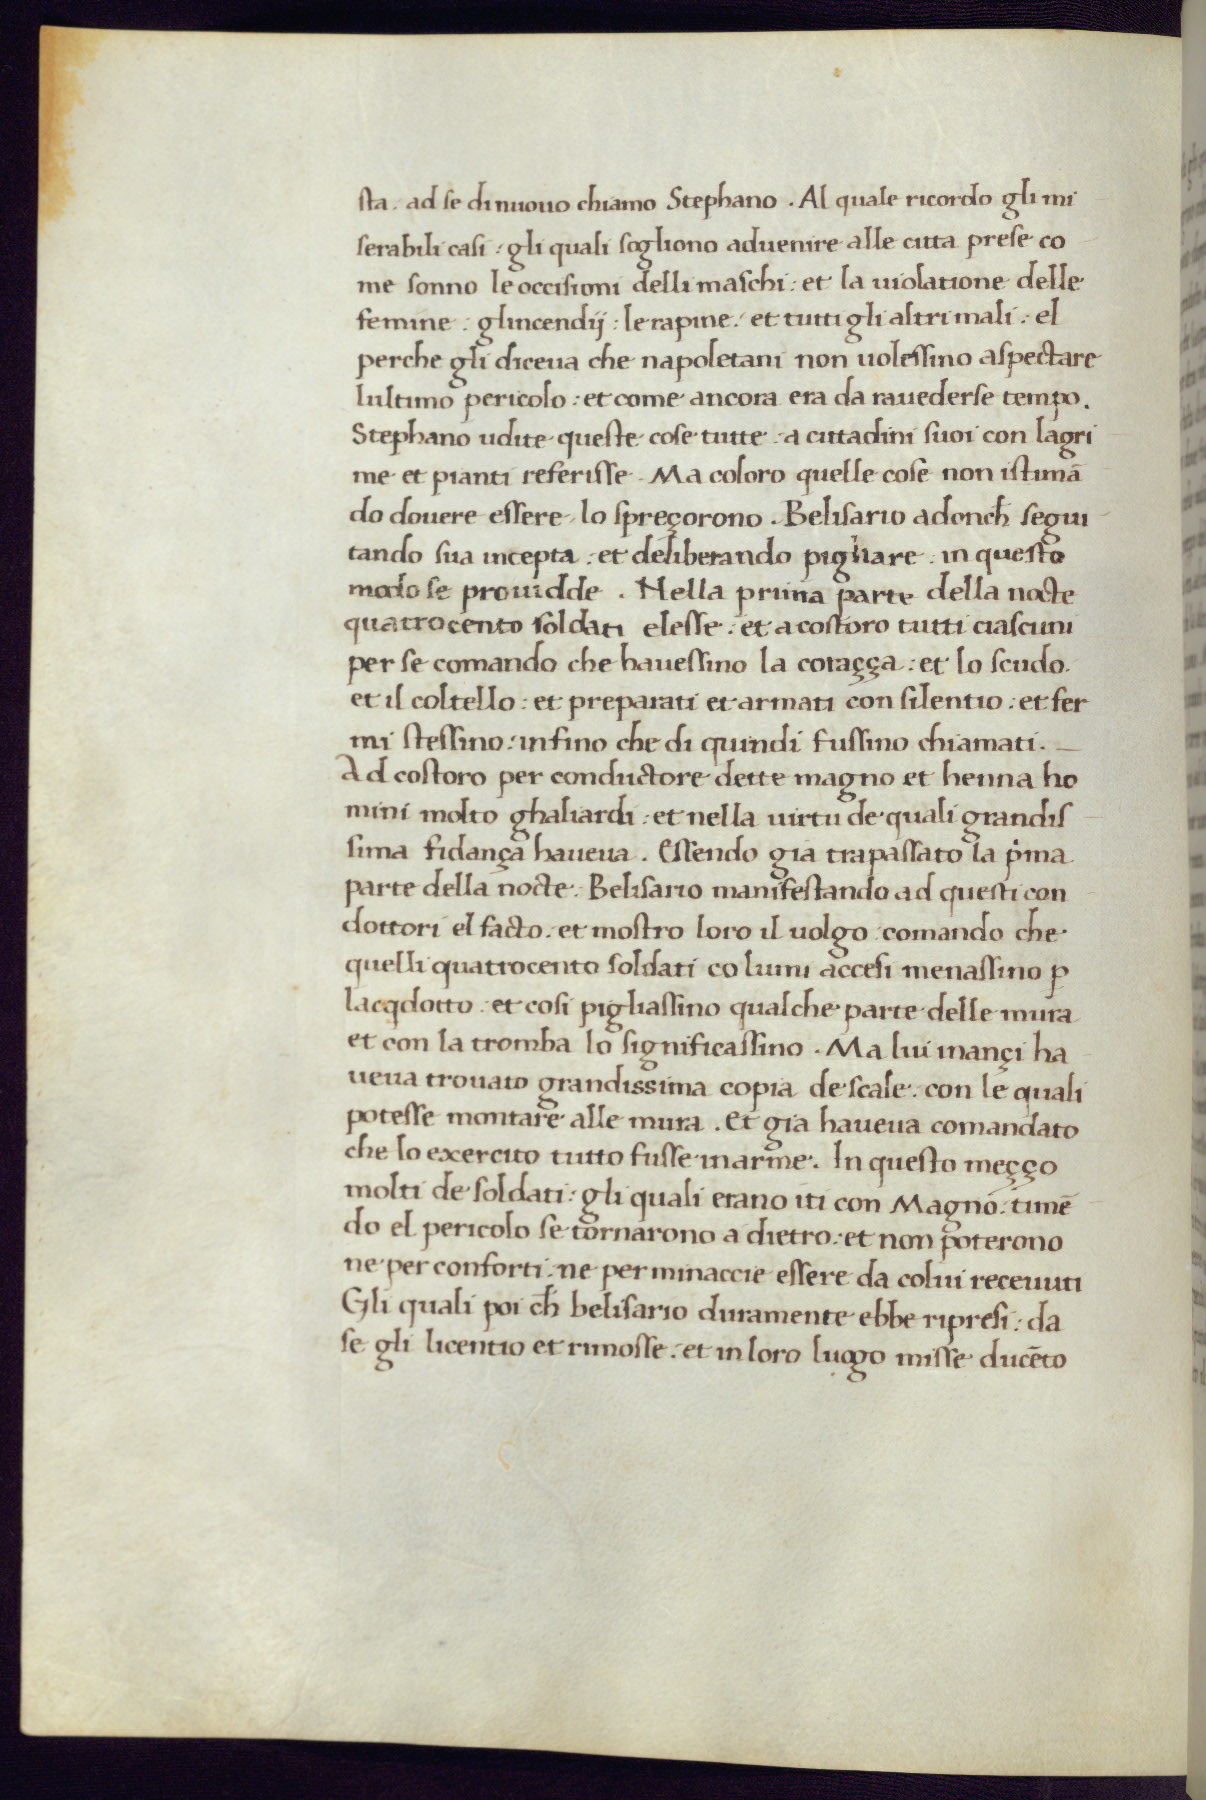 sta. ad se di nuouo chiamo Stephano. Al quale ricordo gli mi
serabili casi: gli quali sogliono aduenire alle citta prese co
me sonno le occisioni delli maschi: et la uiolatione delle
femine: glincendij: le rapine: et tutti gli altri mali: el
perche gli diceua che napoletani non uolessino aspectare
lultimo pericolo: et come ancora era da rauederse tempo.
Stephano udite queste cose tutte: a cittadini suoi con lagri
me et pianti referisse. Ma coloro quelle cose non istimā
do douere essere, lo spreçorono. Belisario adonch̄ segui
tando sua incepta: et deliberando pigliare: in questo
modo se prouidde. Nella prima parte della nocte
quatrocento soldati elesse: et a costoro tutti ciascuni
per se comando che hauessino la coraçça: et lo scudo.
et il coltello: et preparati et armati con silentio: et fer
mi stessino: infino che di quindi fussino chiamati.
Ad costoro per conductore dette magno et henna ho
mini molto ghaliardi: et nella uirtu de quali grandis
sima fidança haueua. Essendo gia trapassato la p̓ma
parte della nocte. Belisario manifestando ad questi con
dottori el facto. et mostro loro il uolgo: comando che
quelli quatrocento soldati co lumi accesi menassino ꝑ
lacqdotto: et cosi pigliassino qualche parte delle mura
et con la tromba lo significassino. Ma lui inançi ha
ueua trouato grandissima copia de scale. con le quali
potesse montare alle mura. Et gia haueua comandato
che lo exercito tutto fusse in arme. In questo meçço
molti de soldati: gli quali erano iti con Magno: timē
do el pericolo se tornarono a dietro: et non poterono
ne per conforti. ne per minaccie essere da colui receuuti
Gli quali poi ch̄ belisario duramente ebbe ripresi: da
se gli licentio et rimosse: et in loro luogo misse ducēto